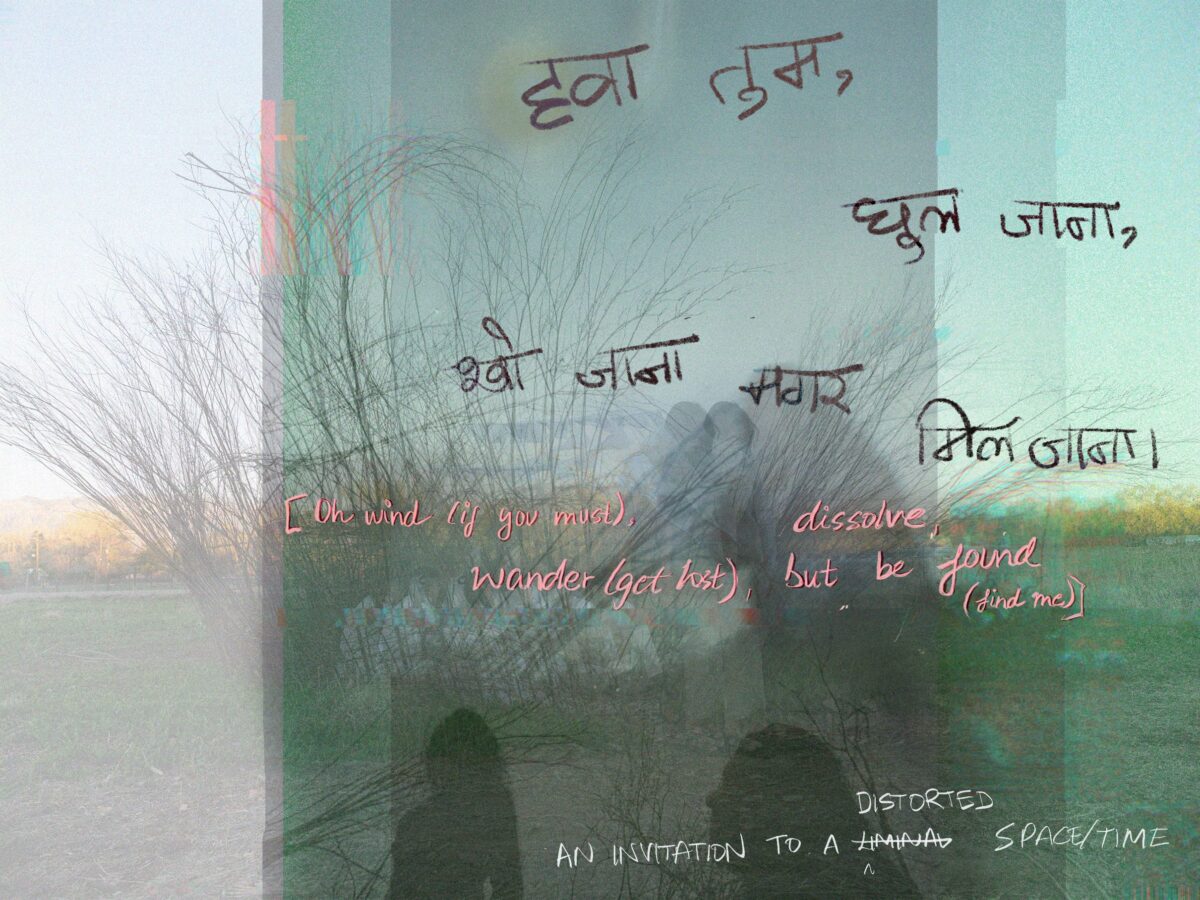 हवा तुम,
घुल जाना,
खो जाना मगर
मिल जाना।
[Oh wind (if you must), dissolve,
wander (get lost), but be found
(find me)]
DISTORTED
AN INVITATION TO A LIMINAL SPACE/TIME